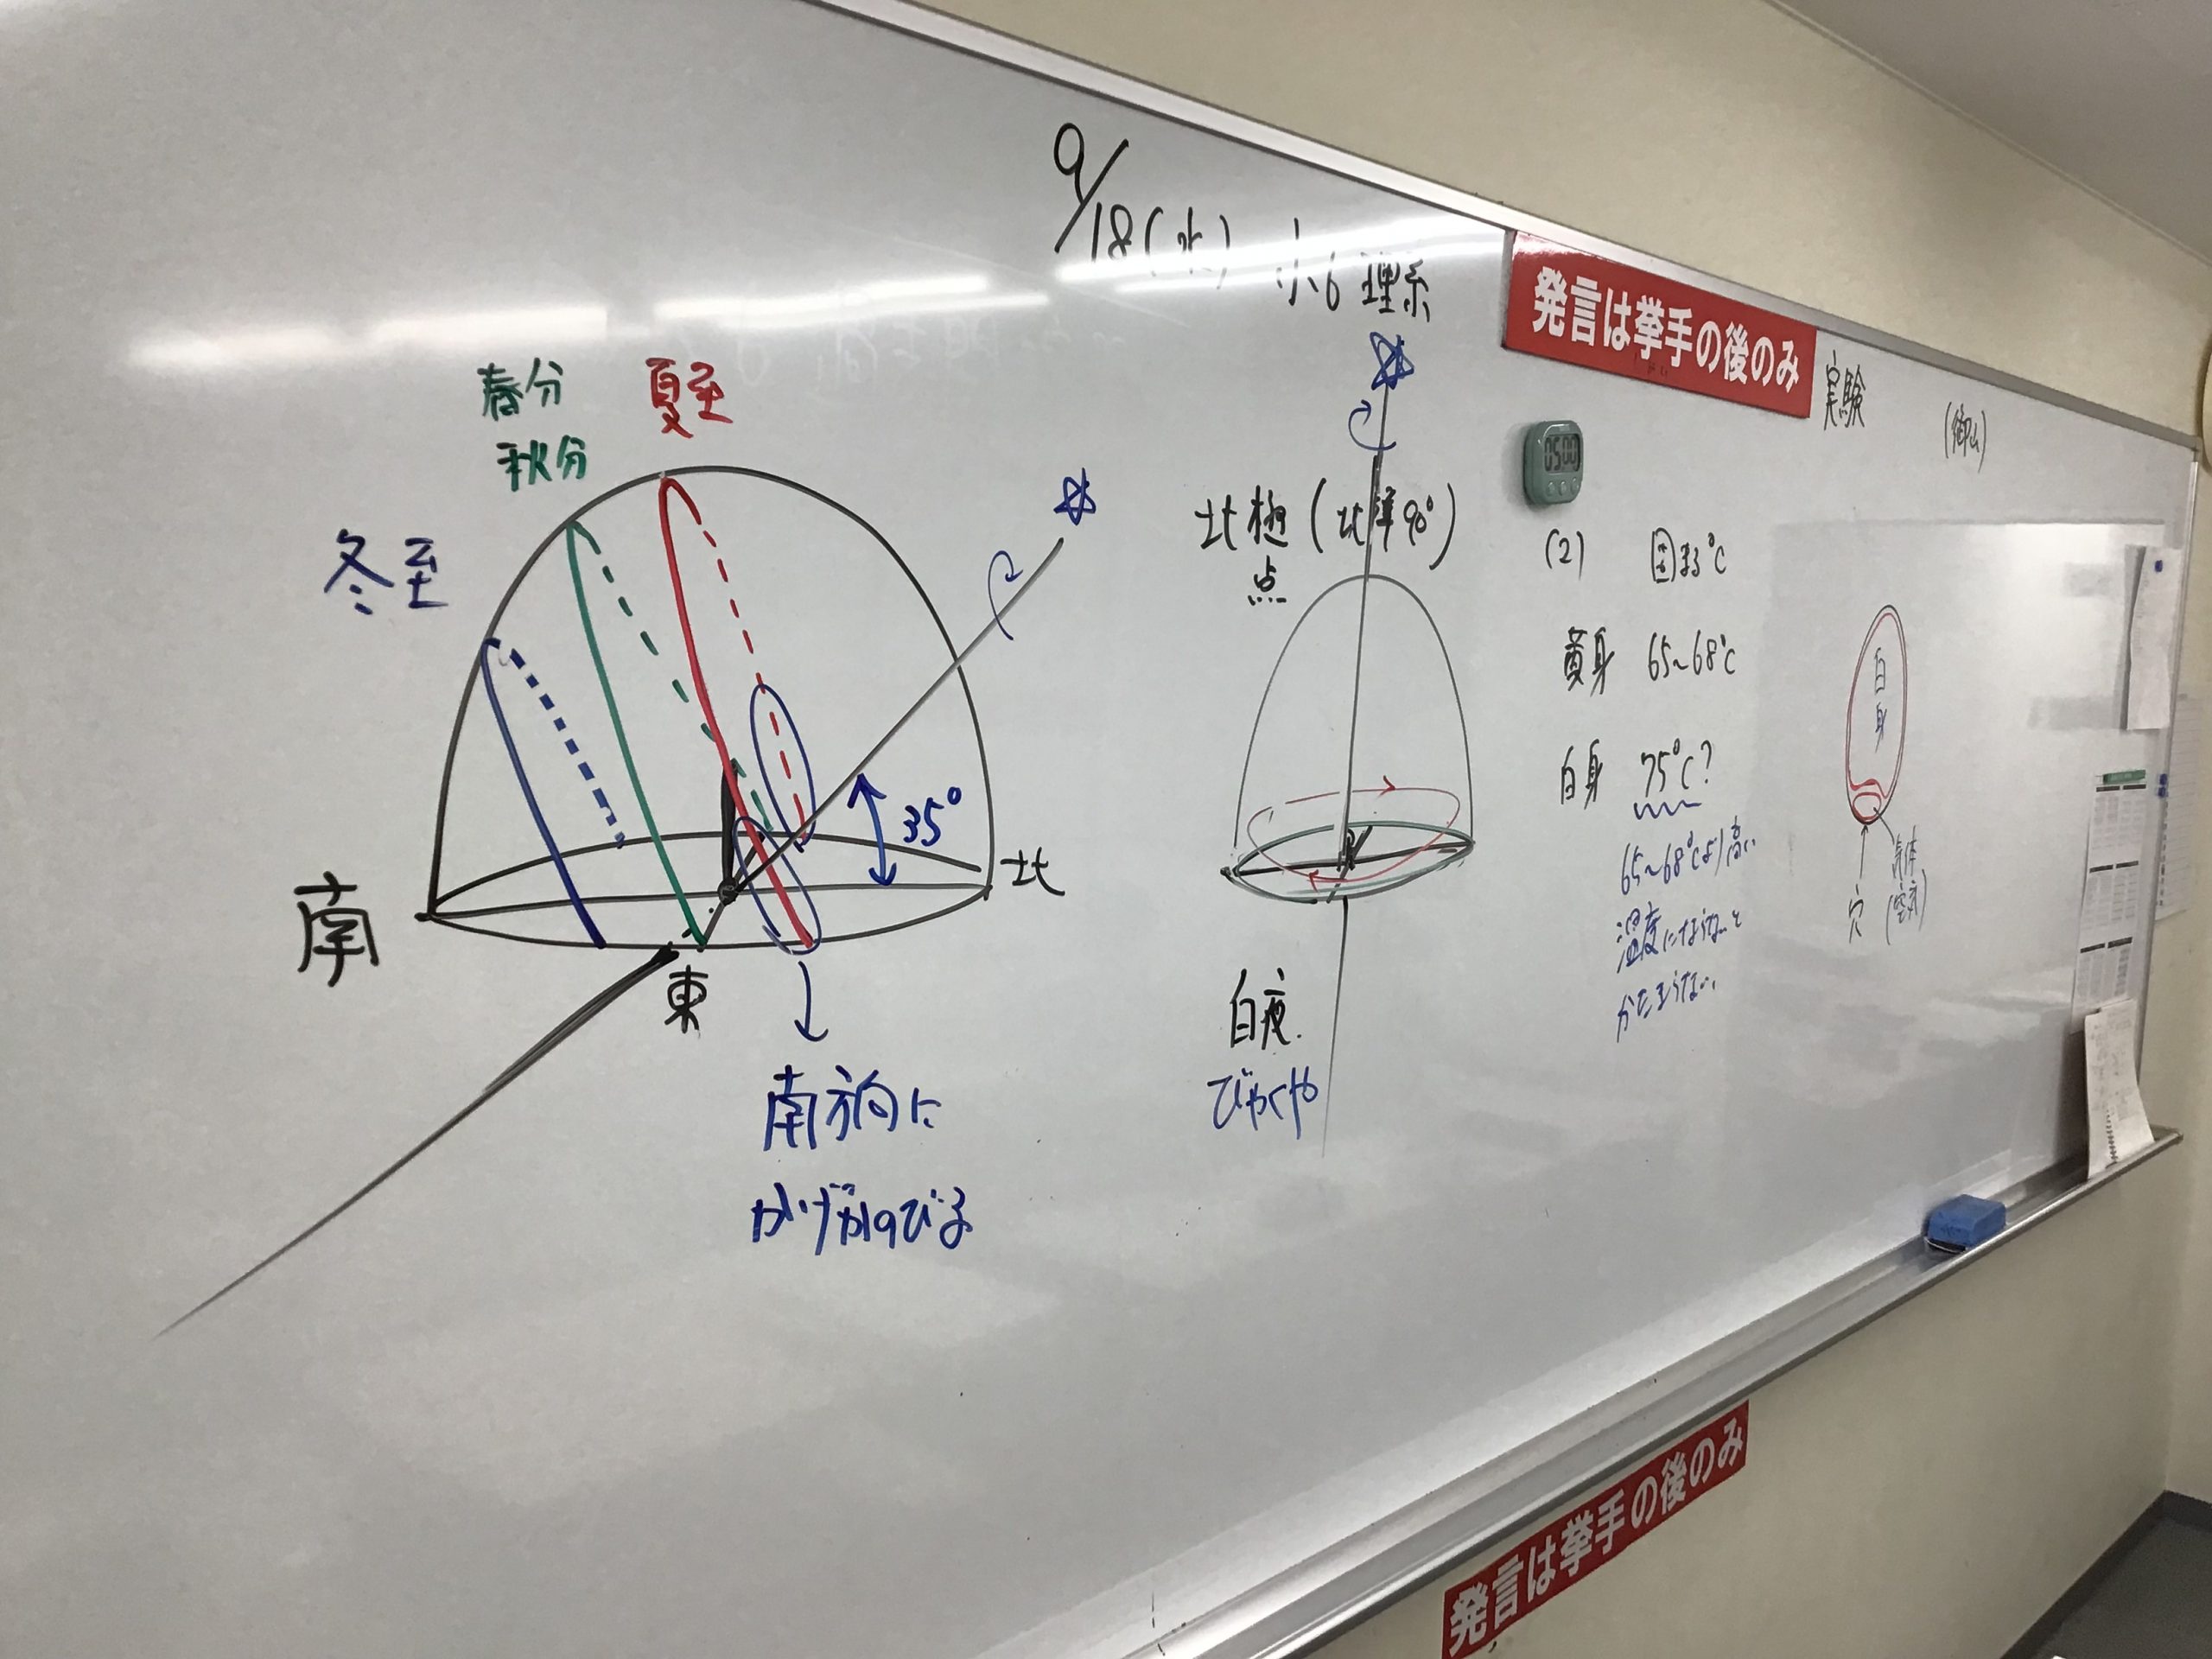 9/18(水) 小6 理系
発言は挙手の後のみ
春分
秋分
夏至
冬至
35°
南
北
東
南方向に
かげがのびる
北極点(北緯90°)
白夜
びゃくや
05:00
実験
(2) 固まる℃
黄身 65~68℃
白身 75℃?
65~68℃より高い
温度にならないと
かたまらない
白身
穴
気体
(空気)
発言は挙手の後のみ